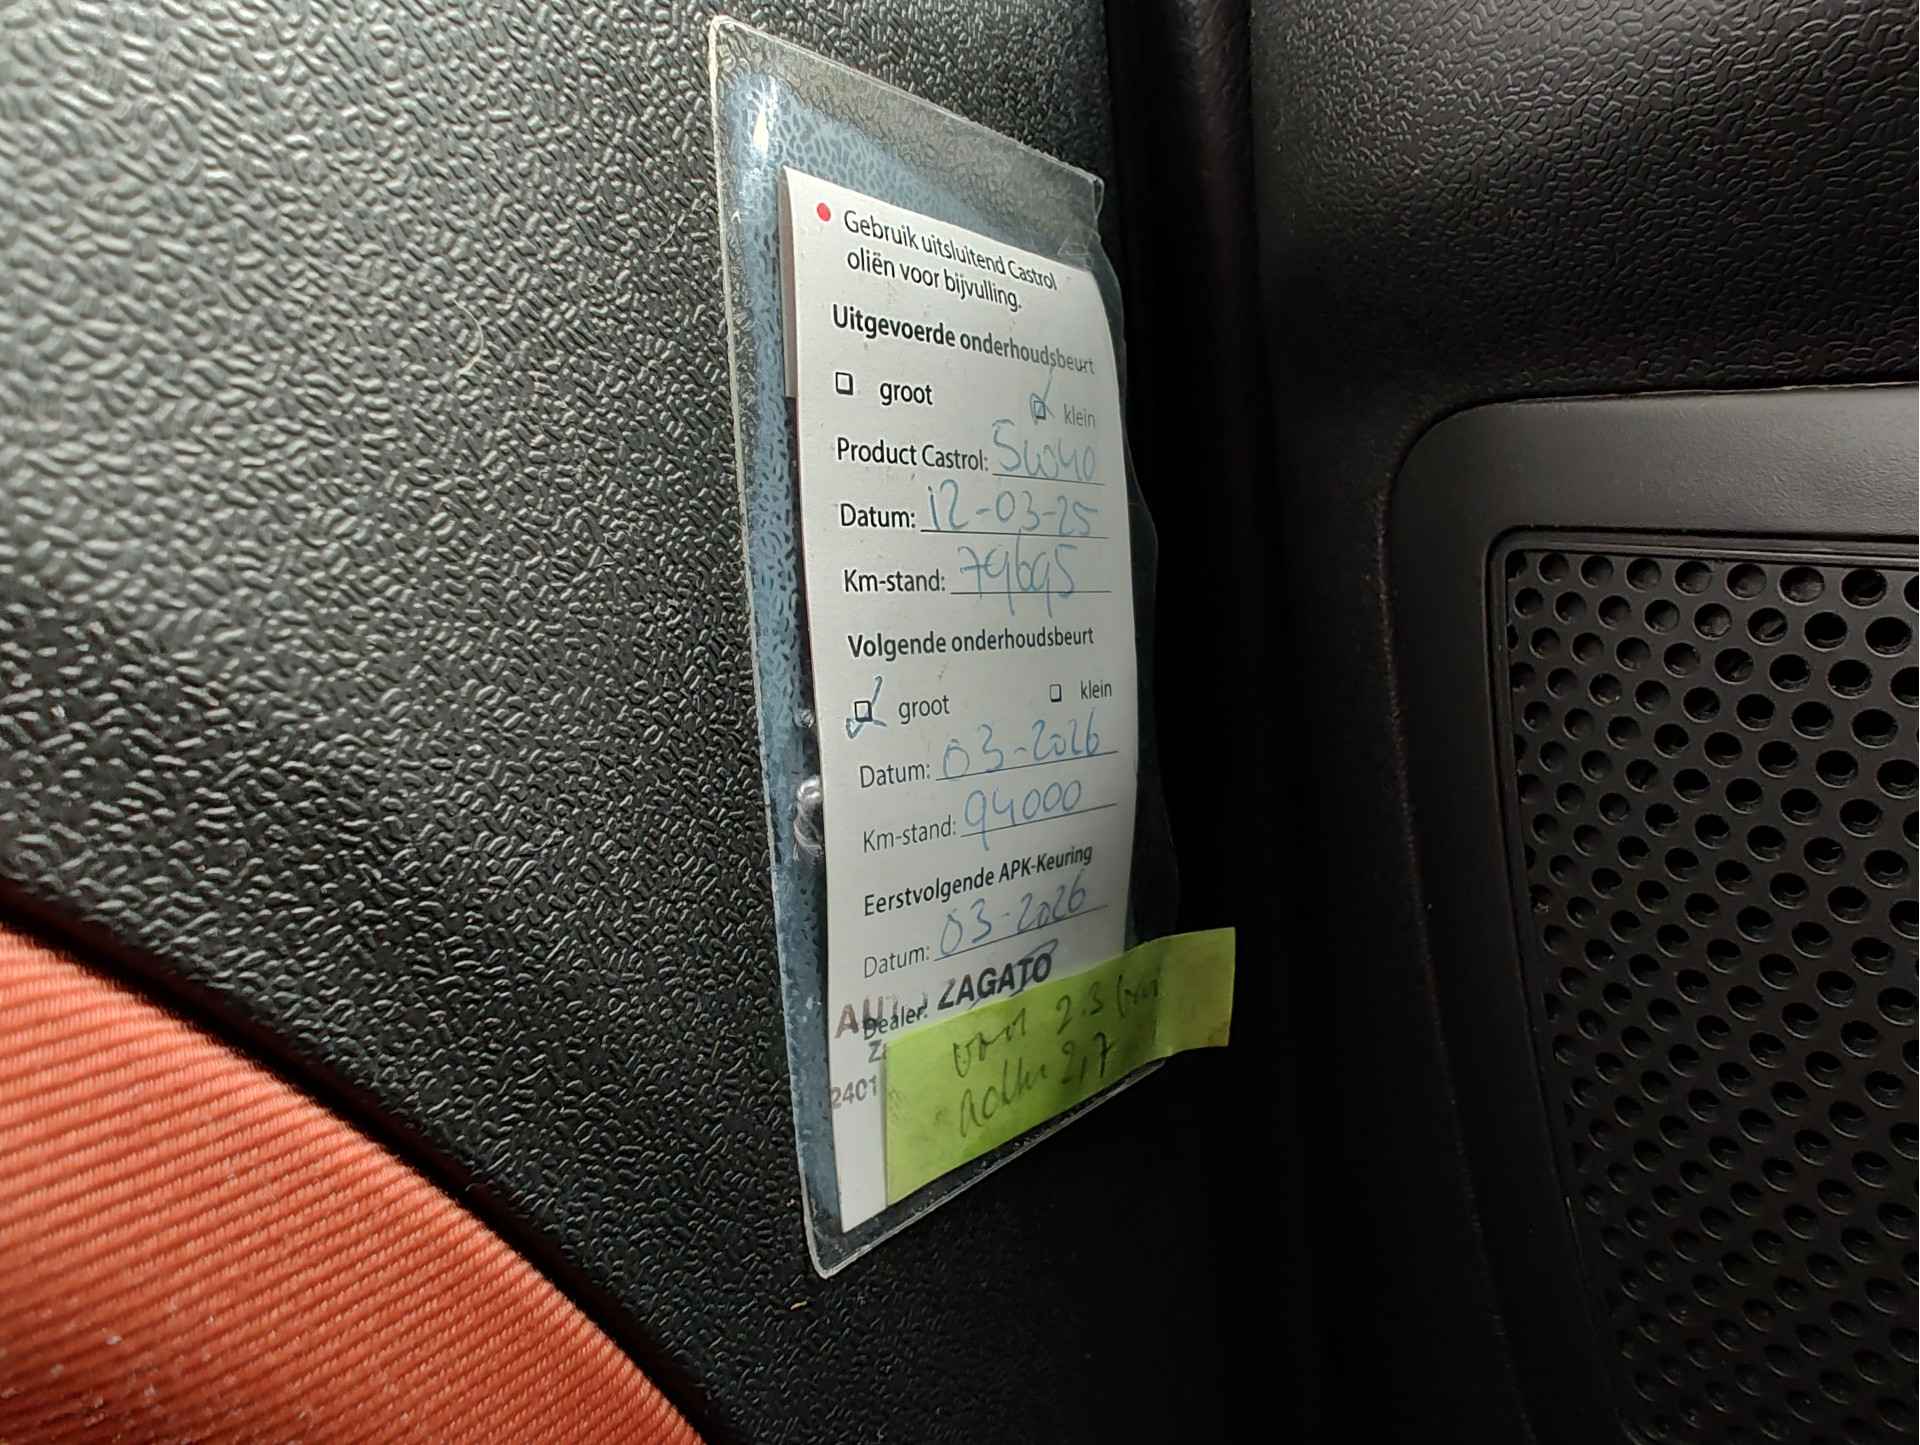 Gebruik uitsluitend Castrol
oliën voor bijvulling.
Uitgevoerde onderhoudsbeurt
groot klein
Product Castrol: 5W040
Datum: 12-03-25
Km-stand: 79695
Volgende onderhoudsbeurt
groot klein
Datum: 03-2026
Km-stand: 94000
Eerstvolgende APK-Keuring
Datum: 03-2026
Dealer: ZAGATO
2401
voor 2.3
achter 2,7